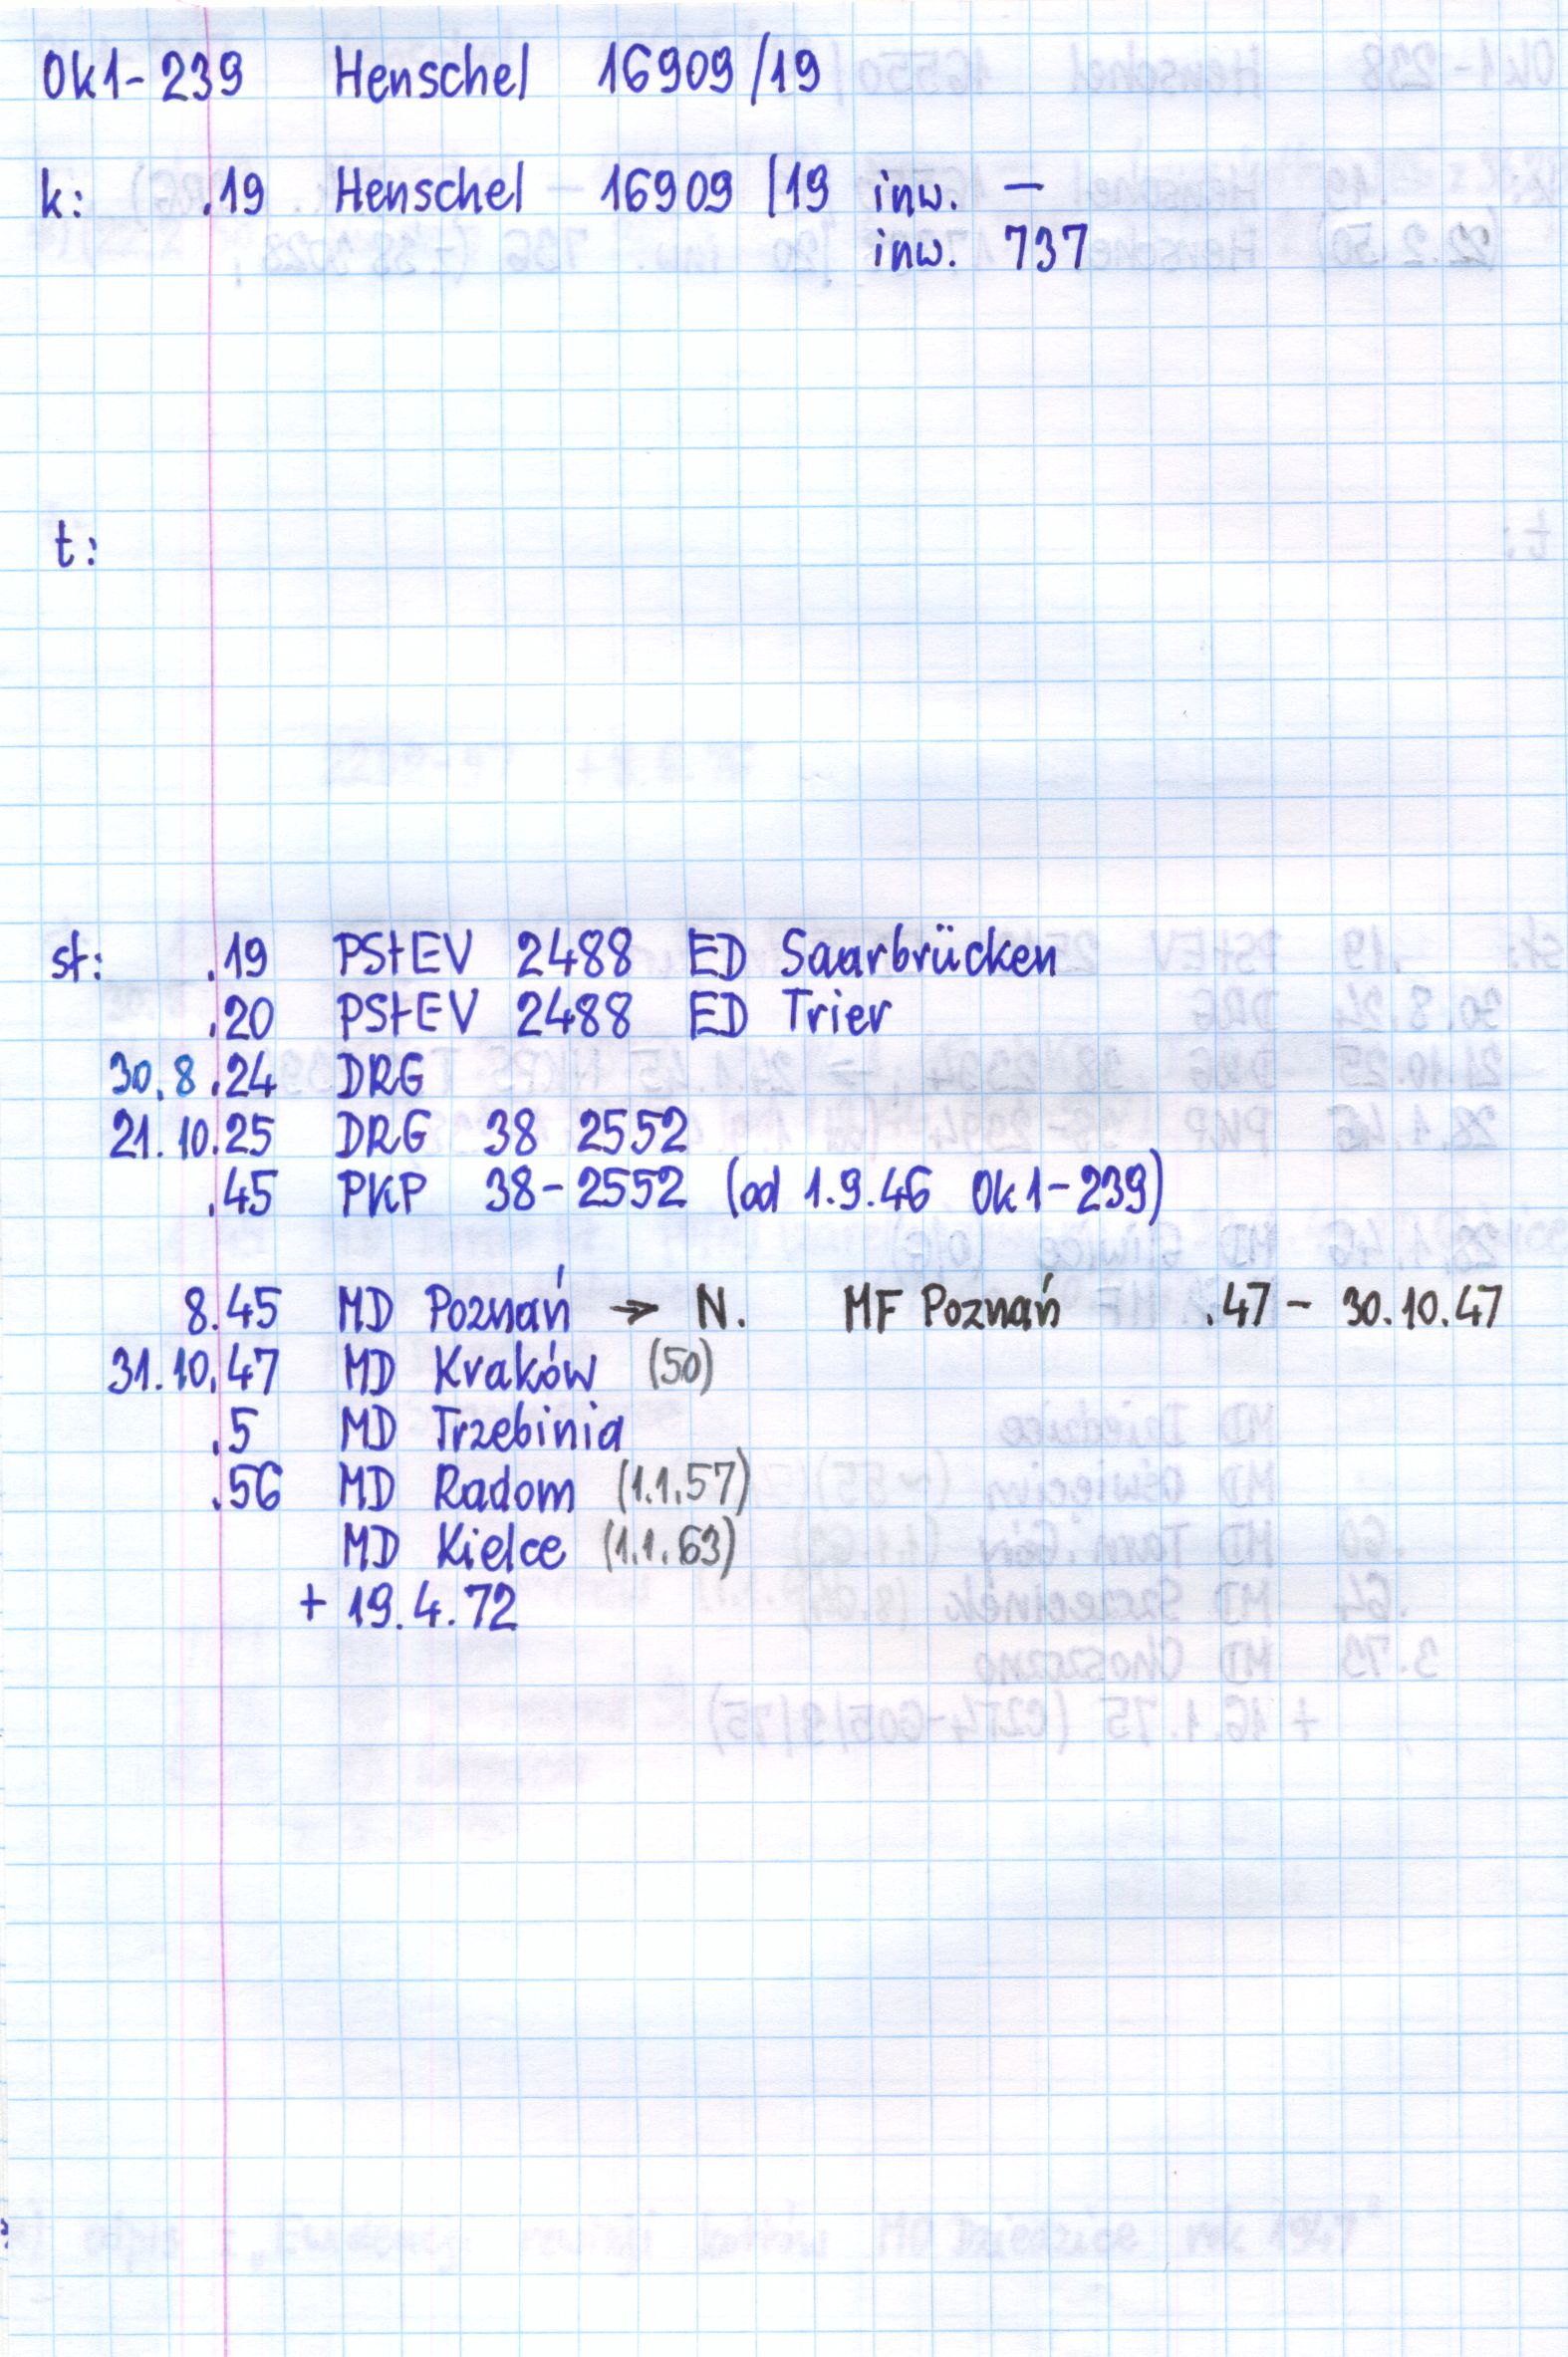 Ok1-239 Henschel 16909/19
k: .19 Henschel - 16909 /19 inw. —
inw. 737
t:
st: .19 PStEV 2488 ED Saarbrücken
.20 PStEV 2488 ED Trier
30.8.24 DRG
21.10.25 DRG 38 2552
.45 PKP 38-2552 (od 1.9.46 Ok1-239)
8.45 MD Poznań → N. MF Poznań .47 - 30.10.47
31.10.47 MD Kraków (50)
.5 MD Trzebinia
.56 MD Radom (1.1.57)
MD Kielce (1.1.63)
+ 19.4.72